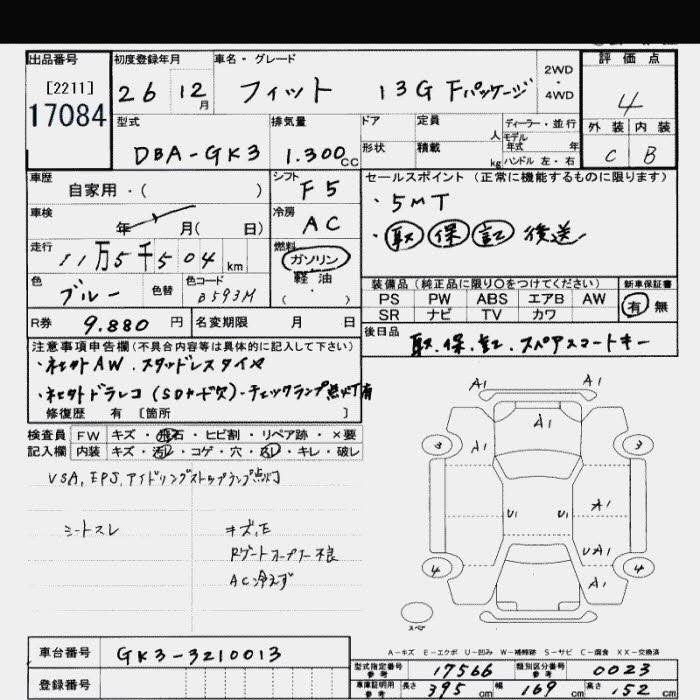 出品番号 初度登録年月 車名・グレード 2WD・4WD 評価点
[2211]
17084
26 12月 フィット 13G Fパッケージ 4
型式 排気量 ドア 定員 人 ディーラー・並行 外装 内装
モデル年式 年
DBA-GK3 1.300cc 形状 積載 kg ハンドル 左・右 C B
車歴 自家用・( ) シフト F5 セールスポイント (正常に機能するものに限ります)
・5MT
車検 年 月( 日) 冷房 AC
・取 保 記 後送
走行 11万5千504km 燃料 ガソリン
軽油
( )
色 ブルー 色替 色コード B593M
装備品 (純正品に限り○をつけてください) 新車保証書
PS PW ABS エアB AW 有 無
SR ナビ TV カワ
R券 9.880円 名変期限 月 日
後日品 取.保.記.スペアスマートキー
注意事項申告欄(不具合内容等は具体的に記入して下さい)
・社外AW.スタッドレスタイヤ
・社外ドラレコ(SDカード欠)・チェックランプ点灯有
修復歴 有 [箇所 ]
検査員 FW キズ・飛石・ヒビ割・リペア跡・×要
記入欄 内装 キズ・汚レ・コゲ・穴・スレ・キレ・破レ
VSA,EPS,アイドリングストップランプ点灯
シートスレ
キズ,E
Rゲートオープナー不良
AC冷えず
A1 A1
A1
3 A1 3
A1
U1 U1
UA1
4 A1 4
スペア
A1
A-キズ E-エクボ U-凹み W-補修跡 S-サビ C-腐食 XX-交換済
車台番号 GK3-3210013
登録番号
型式指定番号 参考 17566 類別区分番号 参考 0023
車庫証明用 参考 長さ 395cm 幅 169cm 高さ 152cm